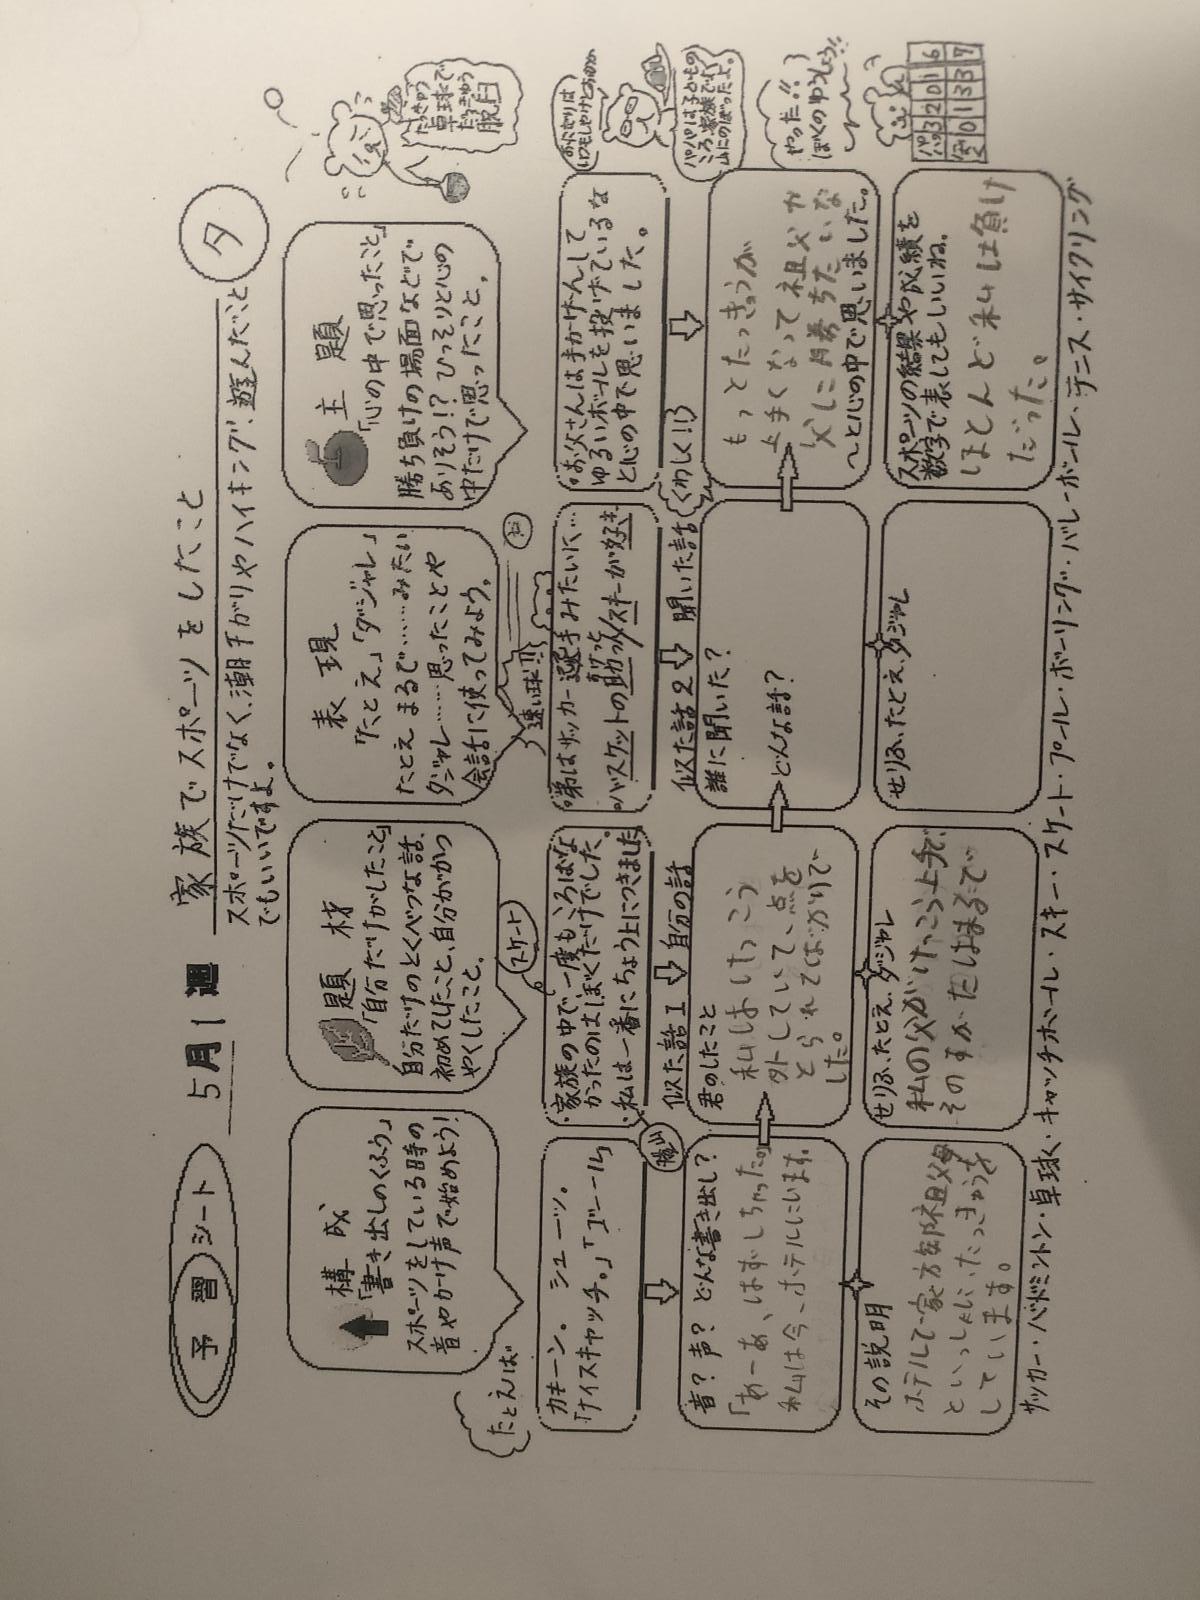 予習シート
5月1週
家族でスポーツをしたこと
スポーツだけでなく、潮干がりやハイキング、遊んだこと
でもいいですよ。
夕
構成
「書き出しのくふう」
スポーツをしている時の
音やかけ声で始めよう!
題材
「自分だけがしたこと」
自分だけのとくべつな話、
初めてしたこと、自分がかつ
やくしたこと。
表現
「たとえ」「ダジャレ」
たとえ まるで……みたい
ダジャレ……思ったことや
会話に使ってみよう。
主題
「心の中で思ったこと」
勝ち負けの場面などで
ありそう!?ひっそりと心の
中だけで思ったこと。
卓球で
脱臼
たとえば
カキーン。 シューッ。
「ナイスキャッチ。」「ゴール」
スケート
・家族の中で一度もころばな
かったのはぼくだけでした。
・私は一番にちょう上につきました
速い球!!
・弟はサッカー選手みたいに…
・バスケットの助っ人
スキーが好き
・お父さんは手かげんして
ゆるいボールを投げているな
と心の中で思いました。
パパは子どもの
ころ家族で
山にのぼったよ。
音?声?どんな書き出し?
「あーあ、はずしちゃった。」
私は今、ホテルにいます。
似た話1
自分の話
君のしたこと
私はけっこう
外していて、点を
とられてばかりで
した。
似た話2
聞いた話
誰に聞いた?
どんな話?
くわしく!!
もっとたっきゅうが
上手くなって祖父か
父に1勝ちたいな
〜と心の中で思いました。
やった!!
ぼくのゆうしょう!!
その説明
ホテルで家族祖父母
といっしょにたっきゅうを
しています。
せりふ、たとえ、ダジャレ
私の父がけっこう上手で、
せりふ、たとえ、ダジャレ
スポーツの結果や成績を
数字で表してもいいね。
ほとんど私は負け
だった。
パパ 3 2 0 1 6
0 1 3 3 7
サッカー・バドミントン・卓球・キャッチボール・スキー・スケート・プール・ボーリング・バレーボール・テニス・サイクリング